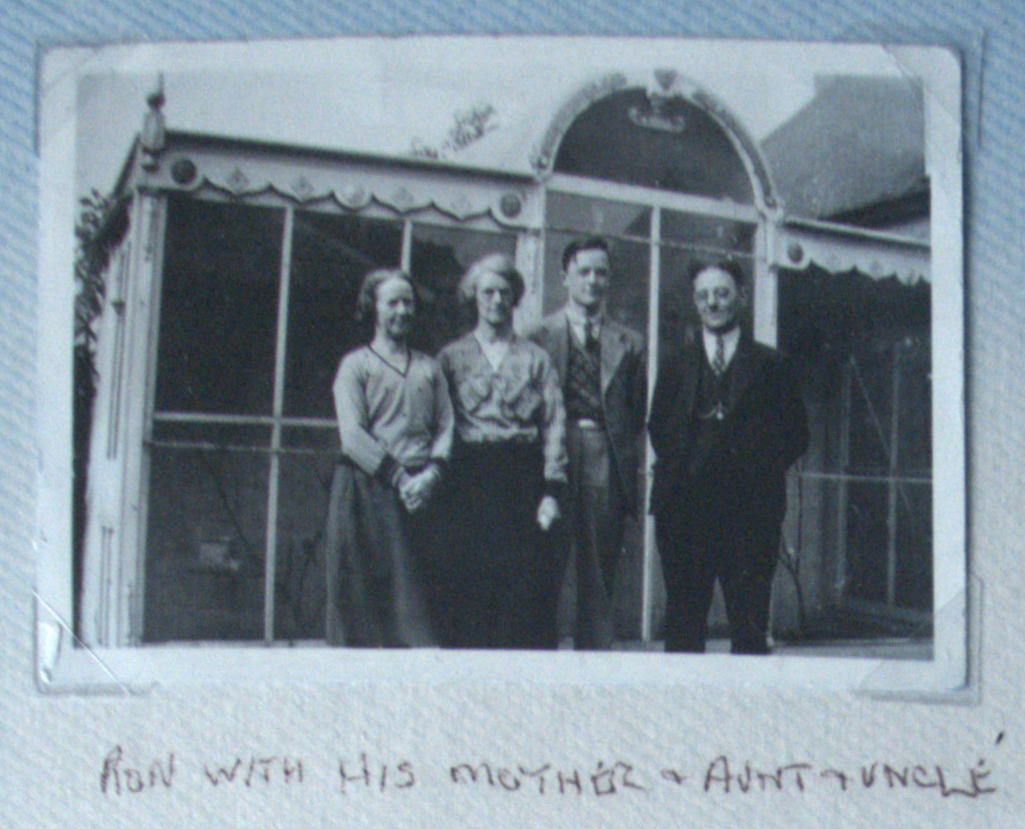 RON WITH HIS MOTHER & AUNT & UNCLE